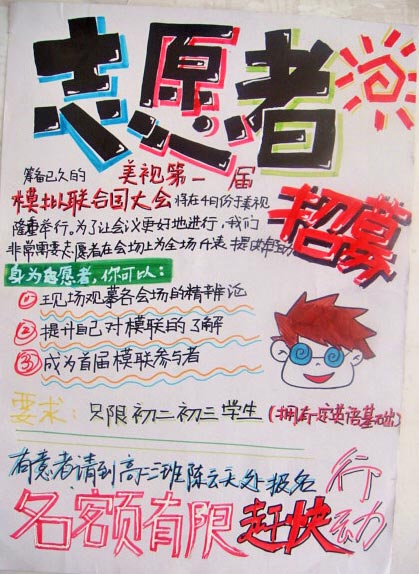 志愿者
招募
筹备已久的 美视第一届
模拟联合国大会 将在4月份于美视
隆重举行。为了让会议更好地进行，我们
非常需要志愿者在会场上为全场代表提供
身为志愿者，你可以：
① 现场观摩各会场的精辩论
② 提升自己对模联的了解
③ 成为首届模联参与者
要求：只限初二初三学生（拥有一定英语基础）
有意者请到高二班陈云天处报名
名额有限 赶快行动